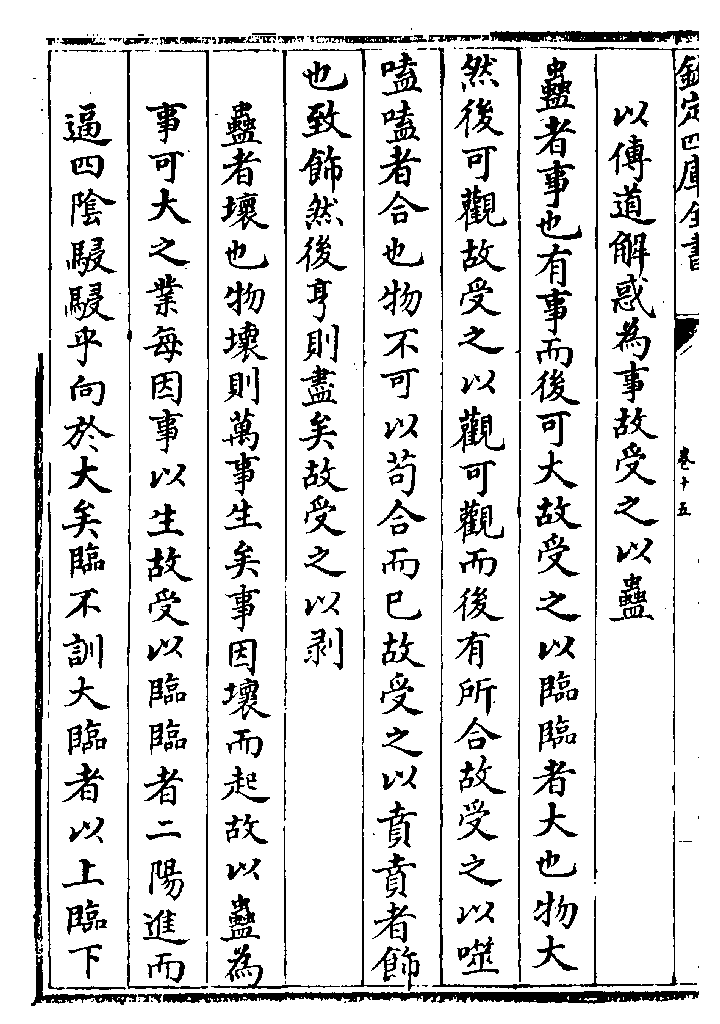 欽定四庫全書
卷十五
以傳道解惑為事故受之以蠱
蠱者事也有事而後可大故受之以臨臨者大也物大
然後可觀故受之以觀可觀而後有所合故受之以噬
嗑嗑者合也物不可以茍合而已故受之以賁賁者飾
也致飾然後亨則盡矣故受之以剥
蠱者壞也物壞則萬事生矣事因壞而起故以蠱為
事可大之業每因事以生故受以臨臨者二陽進而
逼四陰駸駸乎向於大矣臨不訓大臨者以上臨下